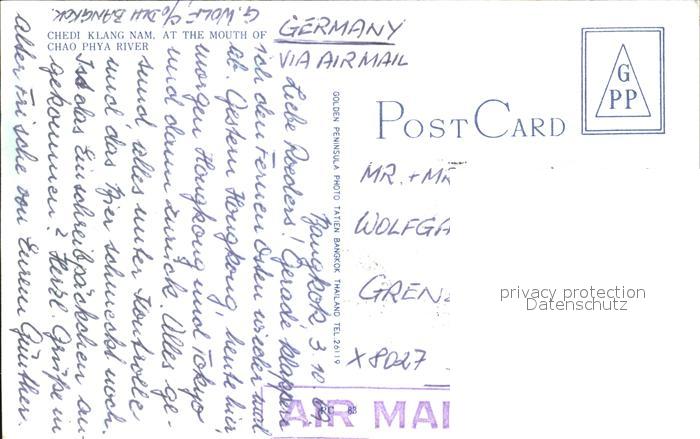 G. WOLF, c/o DLH BANGKOK.
CHEDI KLANG NAM, AT THE MOUTH OF
CHAO PHYA RIVER
Bangkok 3.10.69
Liebe Roeders! Gerade klappern
ich den Fernen Osten wieder mal
ab. Gestern Hongkong, heute hier,
morgen Hongkong und Tokyo
und dann zurück. Alles ge-
sund, alles unter Kontrolle
und das Bier schmeckt noch.
Ist das Einschreibpäckchen an-
gekommen? Herzl. Grüße in
alter Frische von Eurem Günther.
GOLDEN PENINSULA PHOTO TATIEN BANGKOK THAILAND TEL. 26119
GERMANY
VIA AIRMAIL
POST CARD
G
PP
MR. + MR
WOLFGA
GREN
X 8027
AIR MAI
privacy protection
Datenschutz